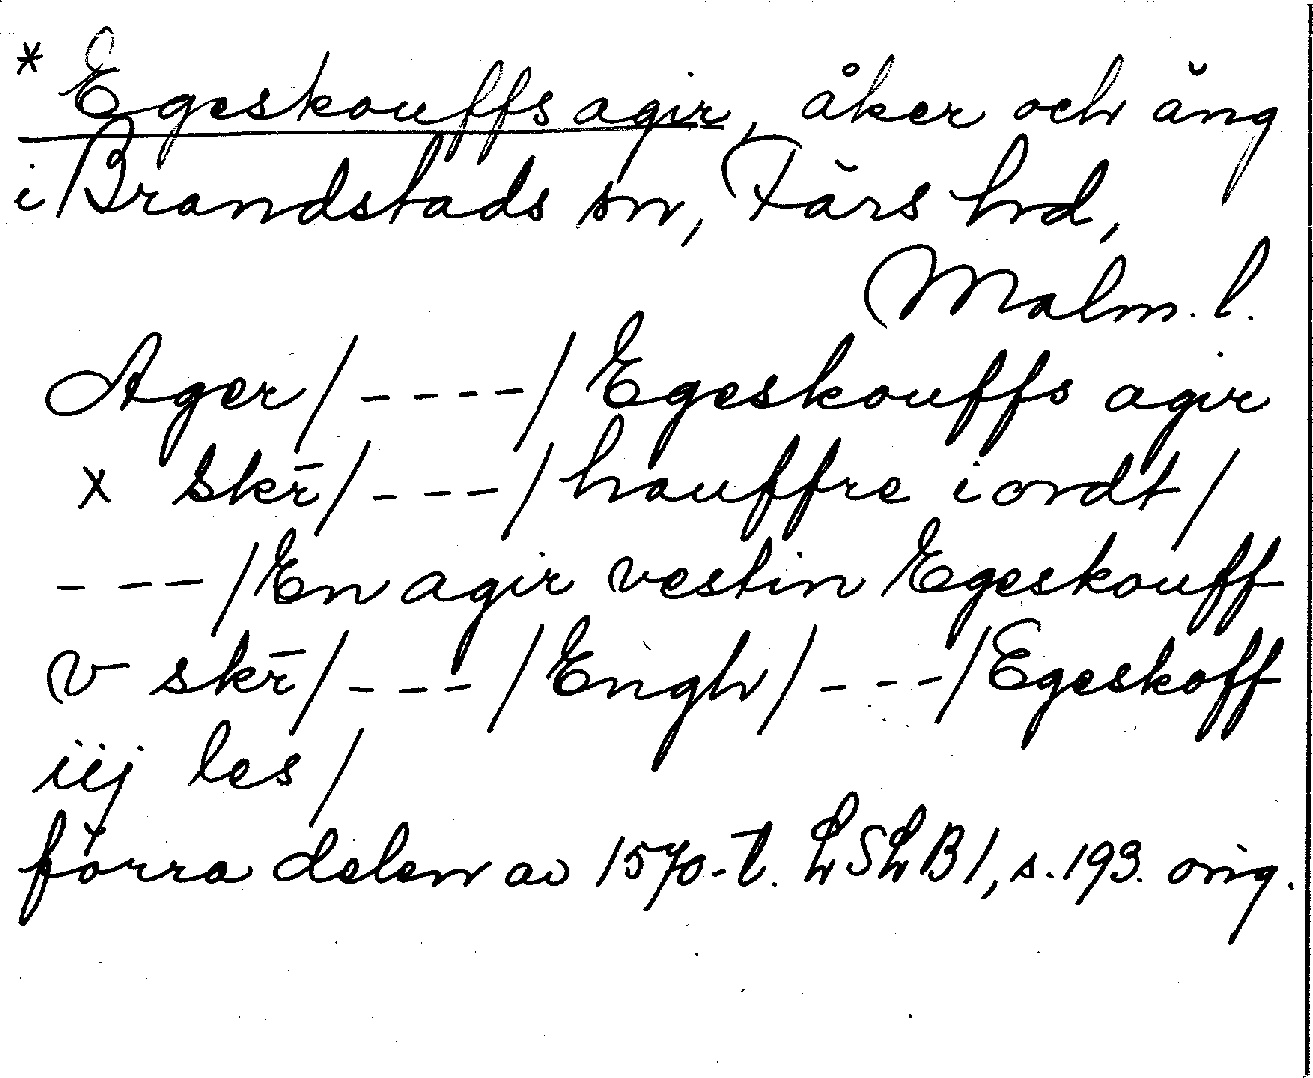 * Egeskouffs agir, åker och äng
i Brandstads sn, Färs hd,
Malm. l.
Ager/----/Egeskouffs agir
x skr̄/---/hauffre iordt/
---/En agir vestin Egeskouff
v skr̄/---/Engh/---/Egeskoff
iij les/
förra delen av 1570-t. LSLB1, s. 193. orig.